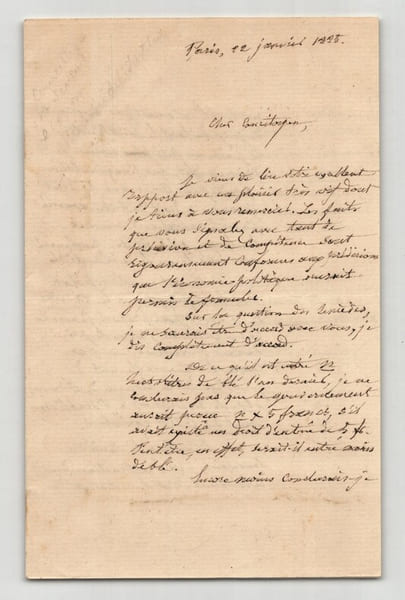 Paris, 22 janvier 1885.
Cher Concitoyen,
Je viens de lire votre excellent
rapport avec un plaisir très vif dont
je tiens à vous remercier. Les faits
que vous signalez avec tant de
précision et de compétence sont
rigoureusement conformes aux prévisions
que l'économie politique aurait
permis de formuler.
Sur la question des remèdes,
je ne saurais être d'accord avec vous, je
dis complètement d'accord.
De ce qu'il est entré n
hectolitres de blé l'an dernier, je ne
conclurais pas que le gouvernement
aurait perçu n x 5 francs, s'il
avait existé un droit d'entrée de 5 fr.
Peut-être, en effet, serait-il entré moins
de blé.
Encore moins conclurais-je